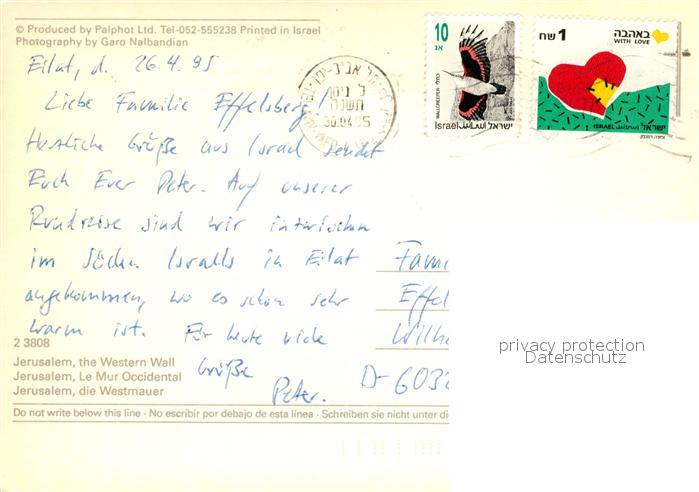 © Produced by Palphot Ltd. Tel-052-555238 Printed in Israel
Photography by Garo Nalbandian
Eilat, d. 26.4.95
Liebe Familie Effelsberg,
Herzliche Grüße aus Israel sendet
Euch Euer Peter. Auf unserer
Rundreise sind wir inzwischen
im Süden Israels in Eilat
angekommen, wo es schon sehr
warm ist. Für heute viele
Grüße
Peter.
10
אג
WALLCREEPER
כותלי
Israel اسرائيل ישראל
1 שח
באהבה
WITH LOVE
ISRAEL اسرائيل ישראל
תל אביב-יפו
ל ניסן
תשנה
30.04.95
Fami
Effel
Wilhe
D-603
privacy protection
Datenschutz
2 3808
Jerusalem, the Western Wall
Jerusalem, Le Mur Occidental
Jerusalem, die Westmauer
Do not write below this line · No escribir por debajo de esta línea · Schreiben sie nicht unter di